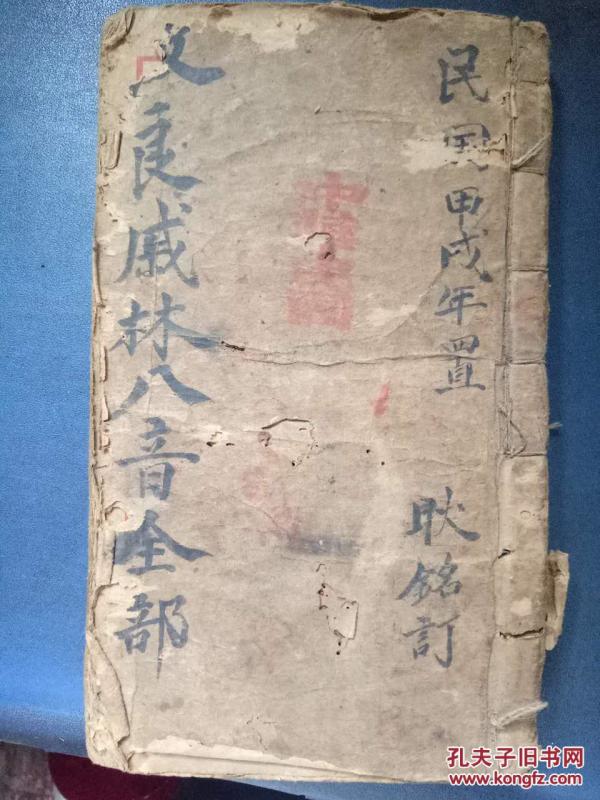 民國甲戌年置
耿銘訂
文良戚林八音全部
孔夫子旧书网
www.kongfz.com